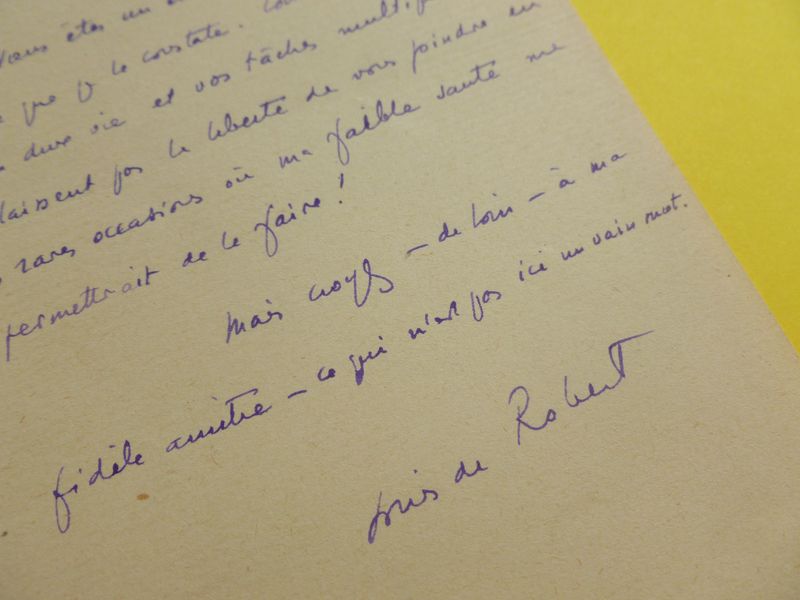 Vous êtes un
que je le constate.
dure vie et vos tâches
laissent pas la liberté de vous joindre en
rares occasions où ma faible santé me
permettrait de le faire!
Mais croyez – de loin – à ma
fidèle amitié – ce qui n'est pas ici un vain mot.
Louis de Robert